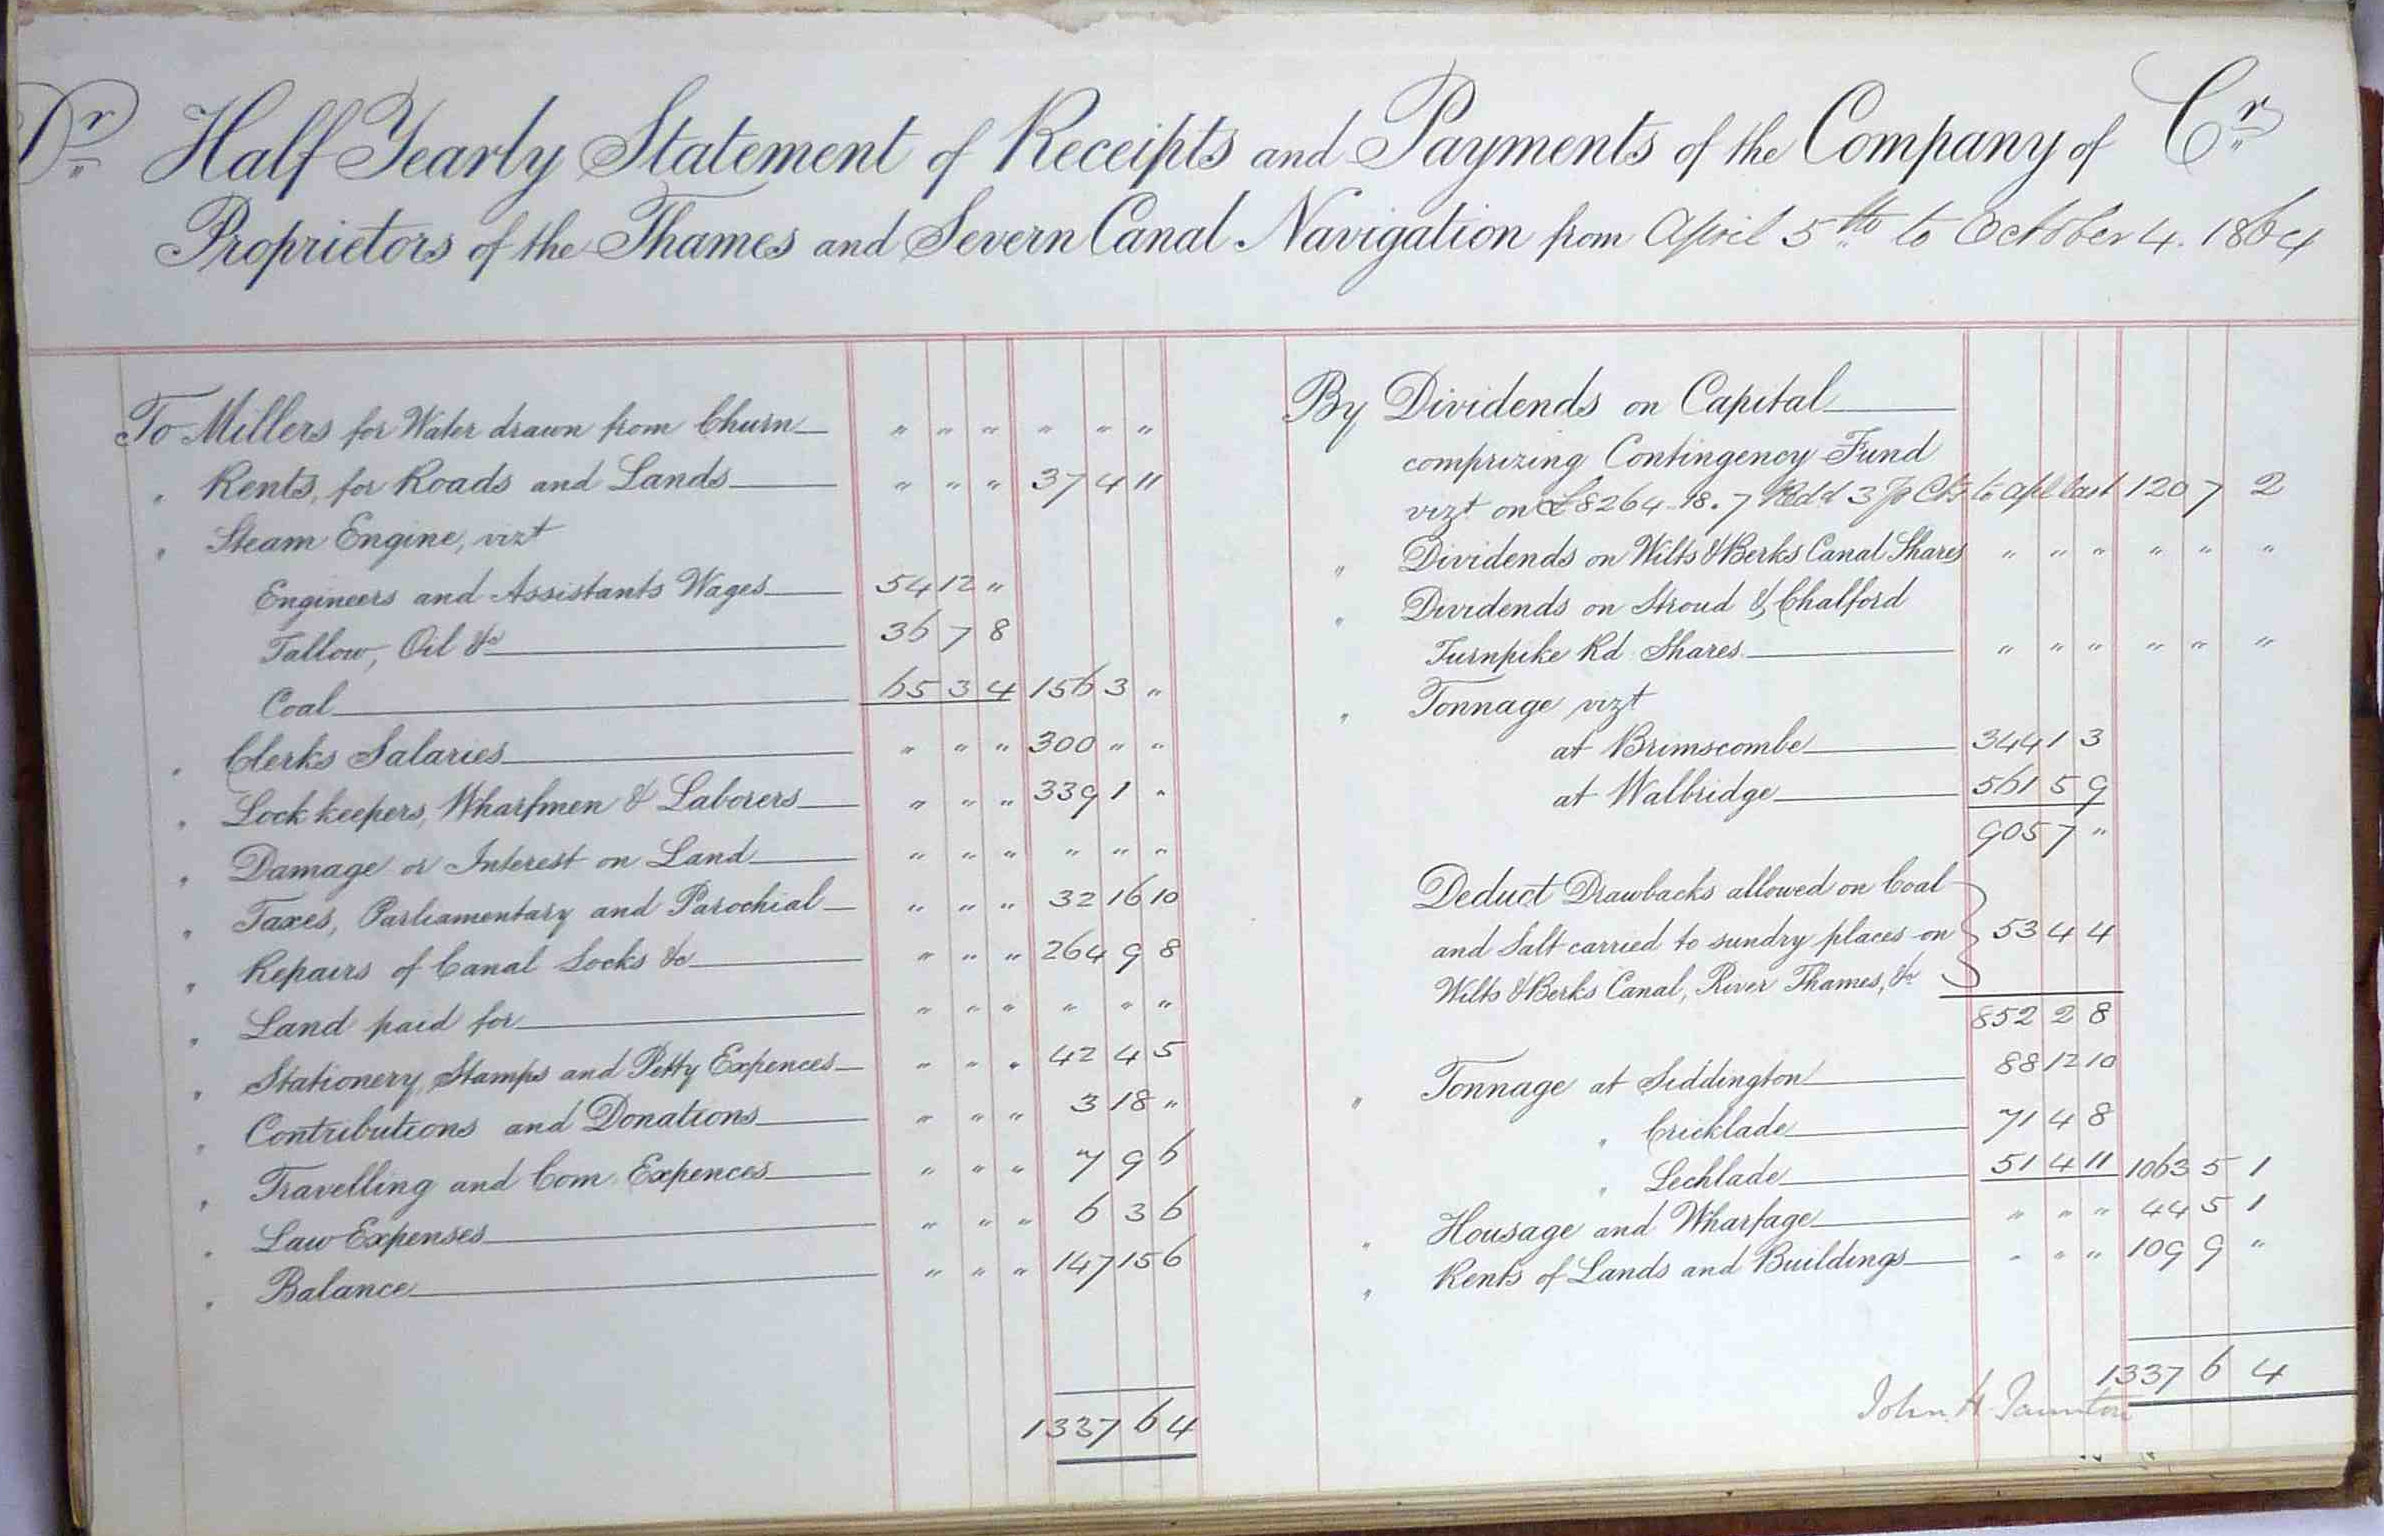 Dr Half Yearly Statement of Receipts and Payments of the Company of Cr
Proprietors of the Thames and Severn Canal Navigation from April 5th to October 4. 1864
To Millers for Water drawn from Churn " " " " " "
" Rents, for Roads and Lands " " " 37 4 11
" Steam Engine, vizt
Engineers and Assistants Wages 54 12 "
Tallow, Oil &c 36 7 8
Coal 65 3 4 156 3 "
" Clerks Salaries " " " 300 " "
" Lock keepers, Wharfmen & Laborers " " " 339 1 "
" Damage or Interest on Land " " " " " "
" Taxes, Parliamentary and Parochial " " " 32 16 10
" Repairs of Canal Locks &c " " " 264 9 8
" Land paid for " " " " " "
" Stationery, Stamps and Petty Expences " " " 42 4 5
" Contributions and Donations " " " 3 18 "
" Travelling and Com Expences " " " 7 9 6
" Law Expenses " " " 6 3 6
" Balance " " " 147 15 6
1337 6 4
By Dividends on Capital
comprizing Contingency Fund
vizt on £8264.18.7 Redd 3 P Cts to Apl last 120 7 2
" Dividends on Wilts & Berks Canal Shares " " " " " "
" Dividends on Stroud & Chalford
Turnpike Rd Shares " " " " " "
" Tonnage vizt
at Brimscombe 344 1 3
at Walbridge 561 5 9
905 7 "
Deduct Drawbacks allowed on Coal
and Salt carried to sundry places on 53 4 4
Wilts & Berks Canal, River Thames, &c
852 2 8
" Tonnage at Siddington 88 12 10
" Cricklade 71 4 8
" Lechlade 51 4 11 1063 5 1
" Housage and Wharfage " " " 44 5 1
" Rents of Lands and Buildings " " " 109 9 "
1337 6 4
John H Taunton